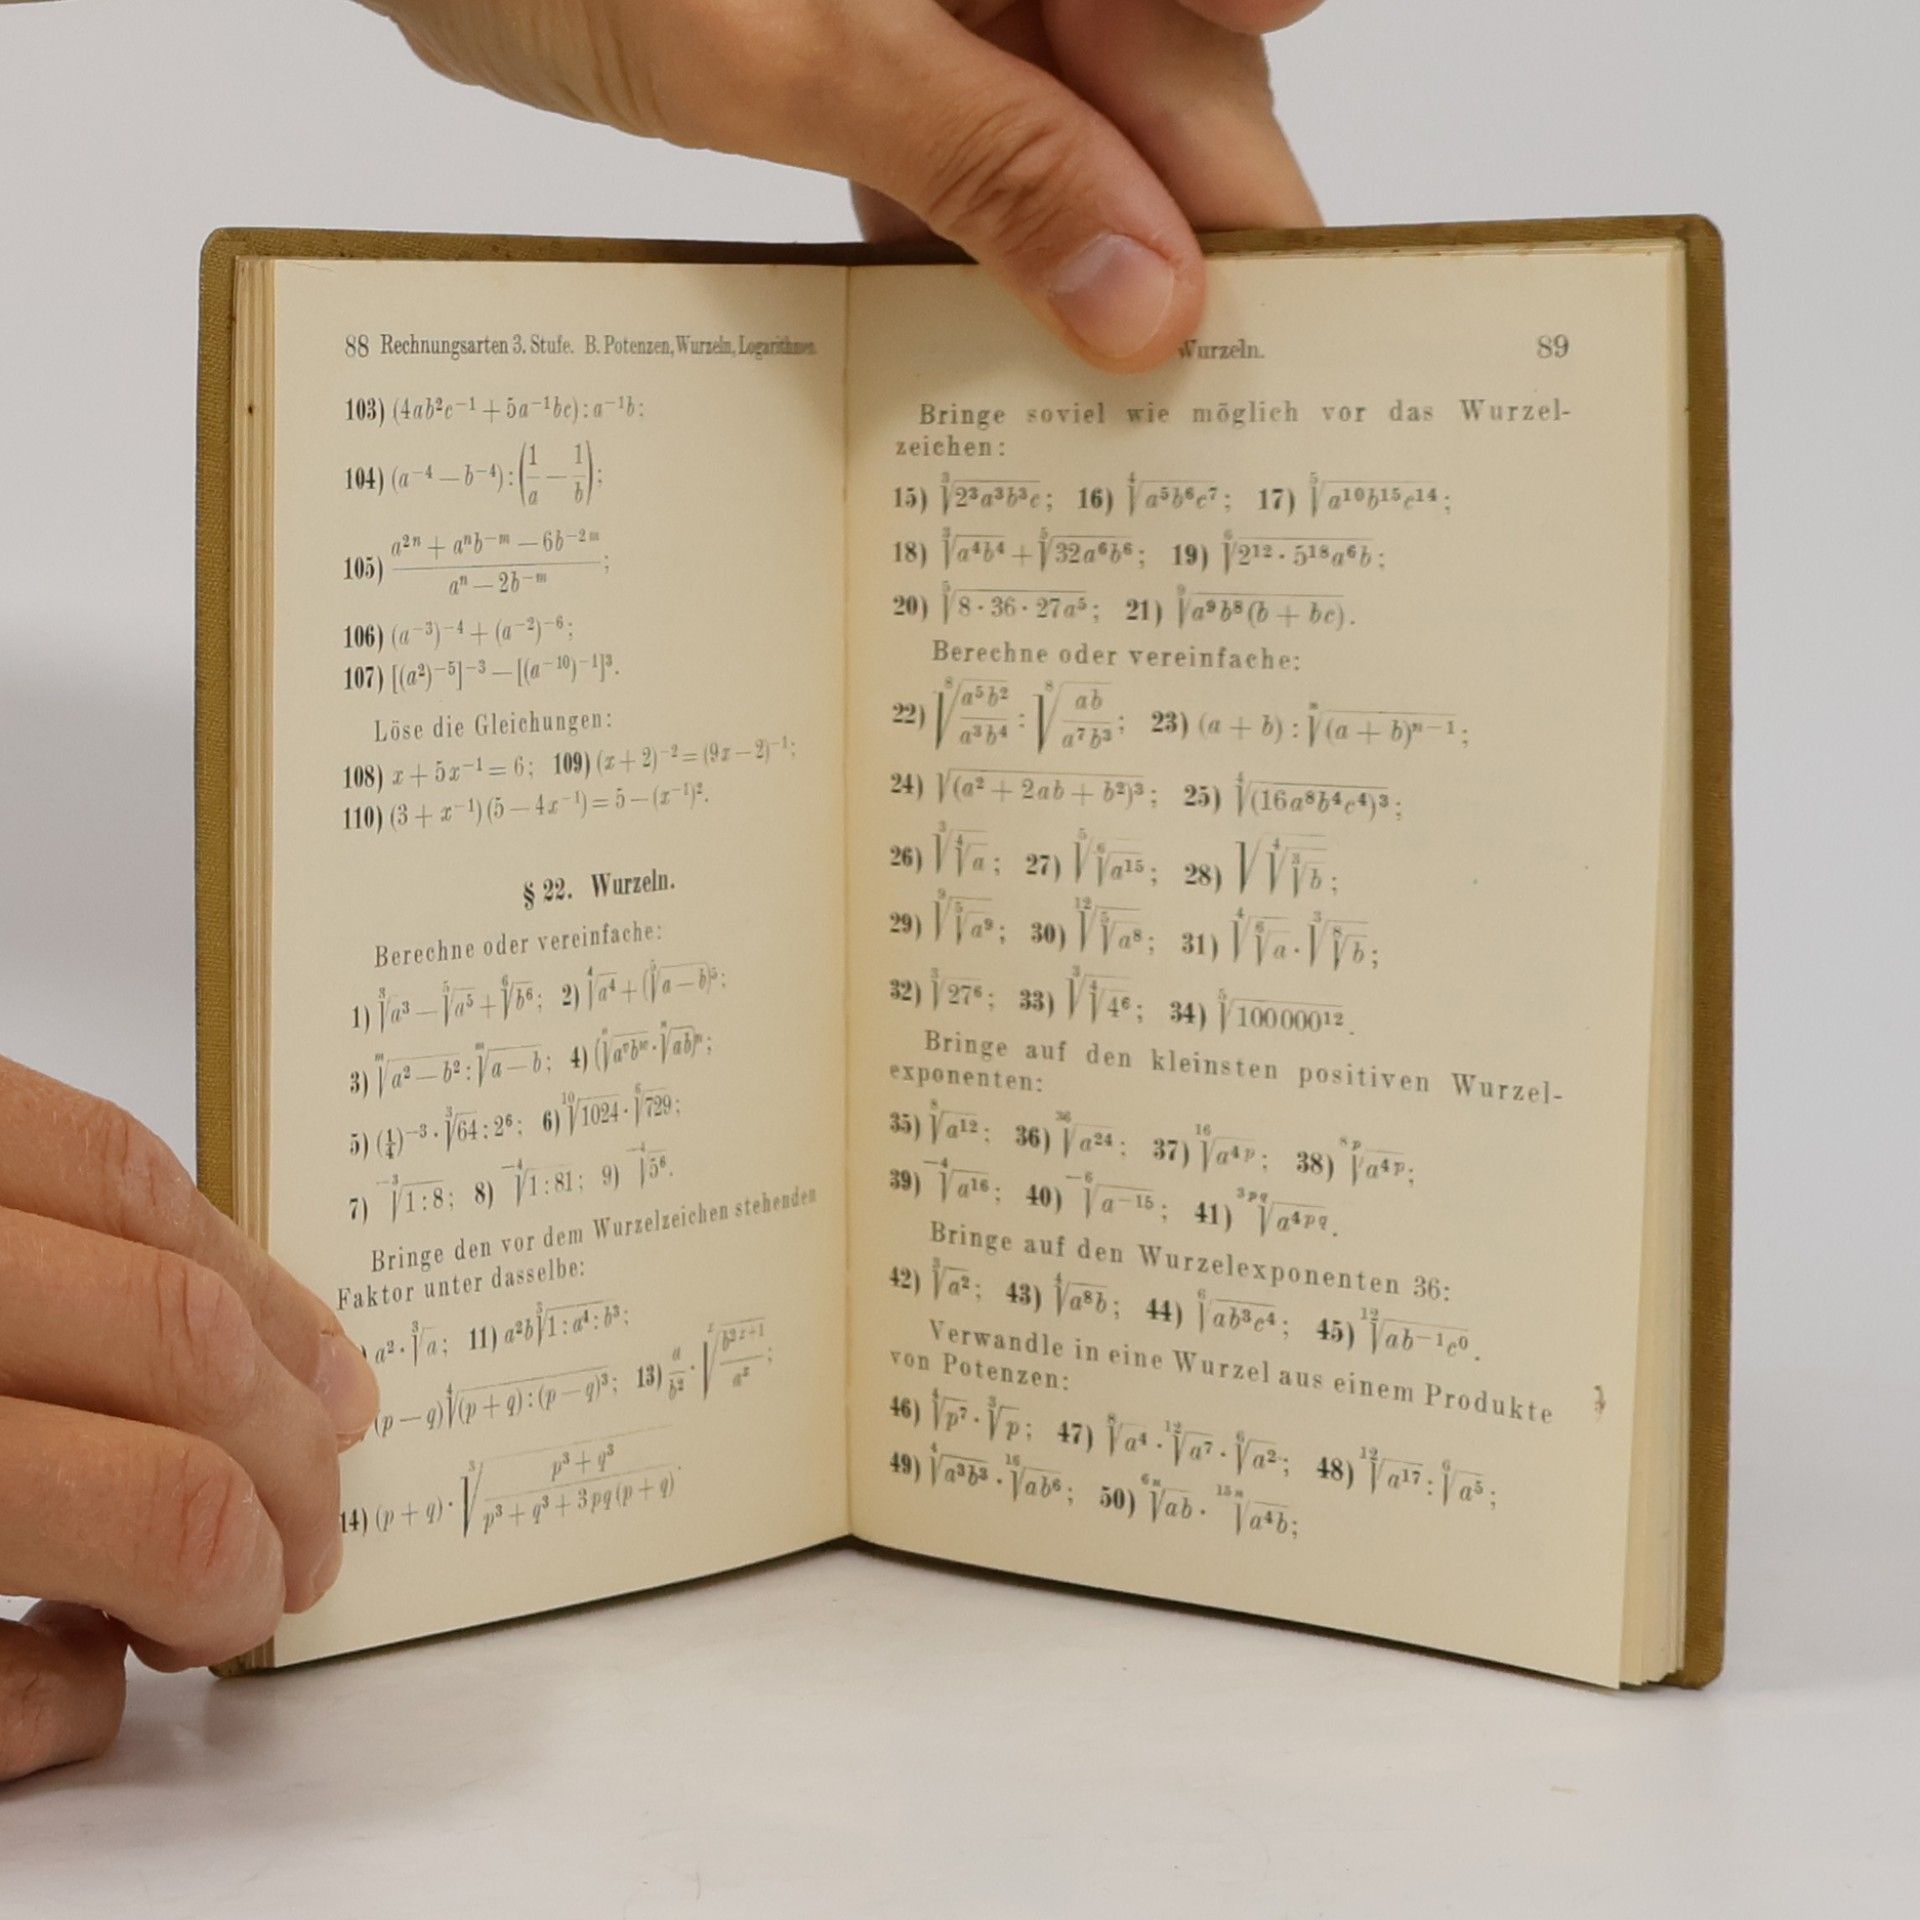 88 Rechnungsarten 3. Stufe. B. Potenzen, Wurzeln, Logarithmen.
103) (4ab²c⁻¹ + 5a⁻¹bc) : a⁻¹b;
104) (a⁻⁴ — b⁻⁴) : (1/a — 1/b);
105) (a²ⁿ + aⁿb⁻ᵐ — 6b⁻²ᵐ)/(aⁿ — 2b⁻ᵐ);
106) (a⁻³)⁻⁴ + (a⁻²)⁻⁶;
107) [(a²)⁻⁵]⁻³ — [(a⁻¹⁰)⁻¹]³.
Löse die Gleichungen:
108) x + 5x⁻¹ = 6; 109) (x + 2)⁻² = (9x — 2)⁻¹;
110) (3 + x⁻¹)(5 — 4x⁻¹) = 5 — (x⁻¹)².
§ 22. Wurzeln.
Berechne oder vereinfache:
1) ³√(a³) — ⁵√(a⁵) + ⁶√(b⁶); 2) ⁴√(a⁴) + (⁵√(a — b))⁵;
3) ᵐ√(a² — b²) : ᵐ√(a — b); 4)
5) (¼)⁻³ · ³√64 : 2⁶; 6) ¹⁰√1024 · ⁶√729;
7) ⁻³√(1 : 8); 8) ⁻⁴√(1 : 81); 9) ⁻⁴√(5⁶).
Bringe den vor dem Wurzelzeichen stehenden
Faktor unter dasselbe:
) a² · ³√a; 11) a²b ⁵√(1 : a⁴ : b³);
(p — q) ⁴√((p + q) : (p — q)³); 13) a/b² · ˣ√(b²ˣ⁺¹/aˣ);
14) (p + q) · ³√((p³ + q³)/(p³ + q³ + 3pq(p + q))).
Wurzeln. 89
Bringe soviel wie möglich vor das Wurzel-
zeichen:
15) ³√(2³a³b³c); 16) ⁴√(a⁵b⁶c⁷); 17) ⁵√(a¹⁰b¹⁵c¹⁴);
18) ³√(a⁴b⁴) + ⁵√(32a⁶b⁶); 19) ⁶√(2¹² · 5¹⁸a⁶b);
20) ⁵√(8 · 36 · 27a⁵); 21) ⁹√(a⁹b⁸(b + bc)).
Berechne oder vereinfache:
22) ⁸√(a⁵b²/a³b⁴) : ⁸√(ab/a⁷b³); 23) (a + b) : ⁿ√((a + b)ⁿ⁻¹);
24) √((a² + 2ab + b²)³); 25) ⁴√((16a⁸b⁴c⁴)³);
26) ³√(⁴√a); 27) ⁵√(⁶√(a¹⁵)); 28) √(⁴√(³√b));
29) ⁹√(⁵√(a⁹)); 30) ¹²√(⁵√(a⁸)); 31) ⁴√(⁶√a) · ³√(⁸√b);
32) ³√(27⁶); 33) ³√(⁴√(4⁶)); 34) ⁵√(100000¹²).
Bringe auf den kleinsten positiven Wurzel-
exponenten:
35) ⁸√(a¹²); 36) ³⁶√(a²⁴); 37) ¹⁶√(a⁴ᵖ); 38) ⁸ᵖ√(a⁴ᵖ);
39) ⁻⁴√(a¹⁶); 40) ⁻⁶√(a⁻¹⁵); 41) ³ᵖ𐞥√(a⁴ᵖ𐞥).
Bringe auf den Wurzelexponenten 36:
42) ³√(a²); 43) ⁴√(a⁸b); 44) ⁶√(ab³c⁴); 45) ¹²√(ab⁻¹c⁰).
Verwandle in eine Wurzel aus einem Produkte
von Potenzen:
46) ⁴√(p⁷) · ³√p; 47) ⁸√(a⁴) · ¹²√(a⁷) · ⁶√(a²); 48) ¹²√(a¹⁷) : ⁶√(a⁵);
49) ⁴√(a³b³) · ¹⁶√(ab⁶); 50) ⁶ⁿ√(ab) · ¹⁵ⁿ√(a⁴b);